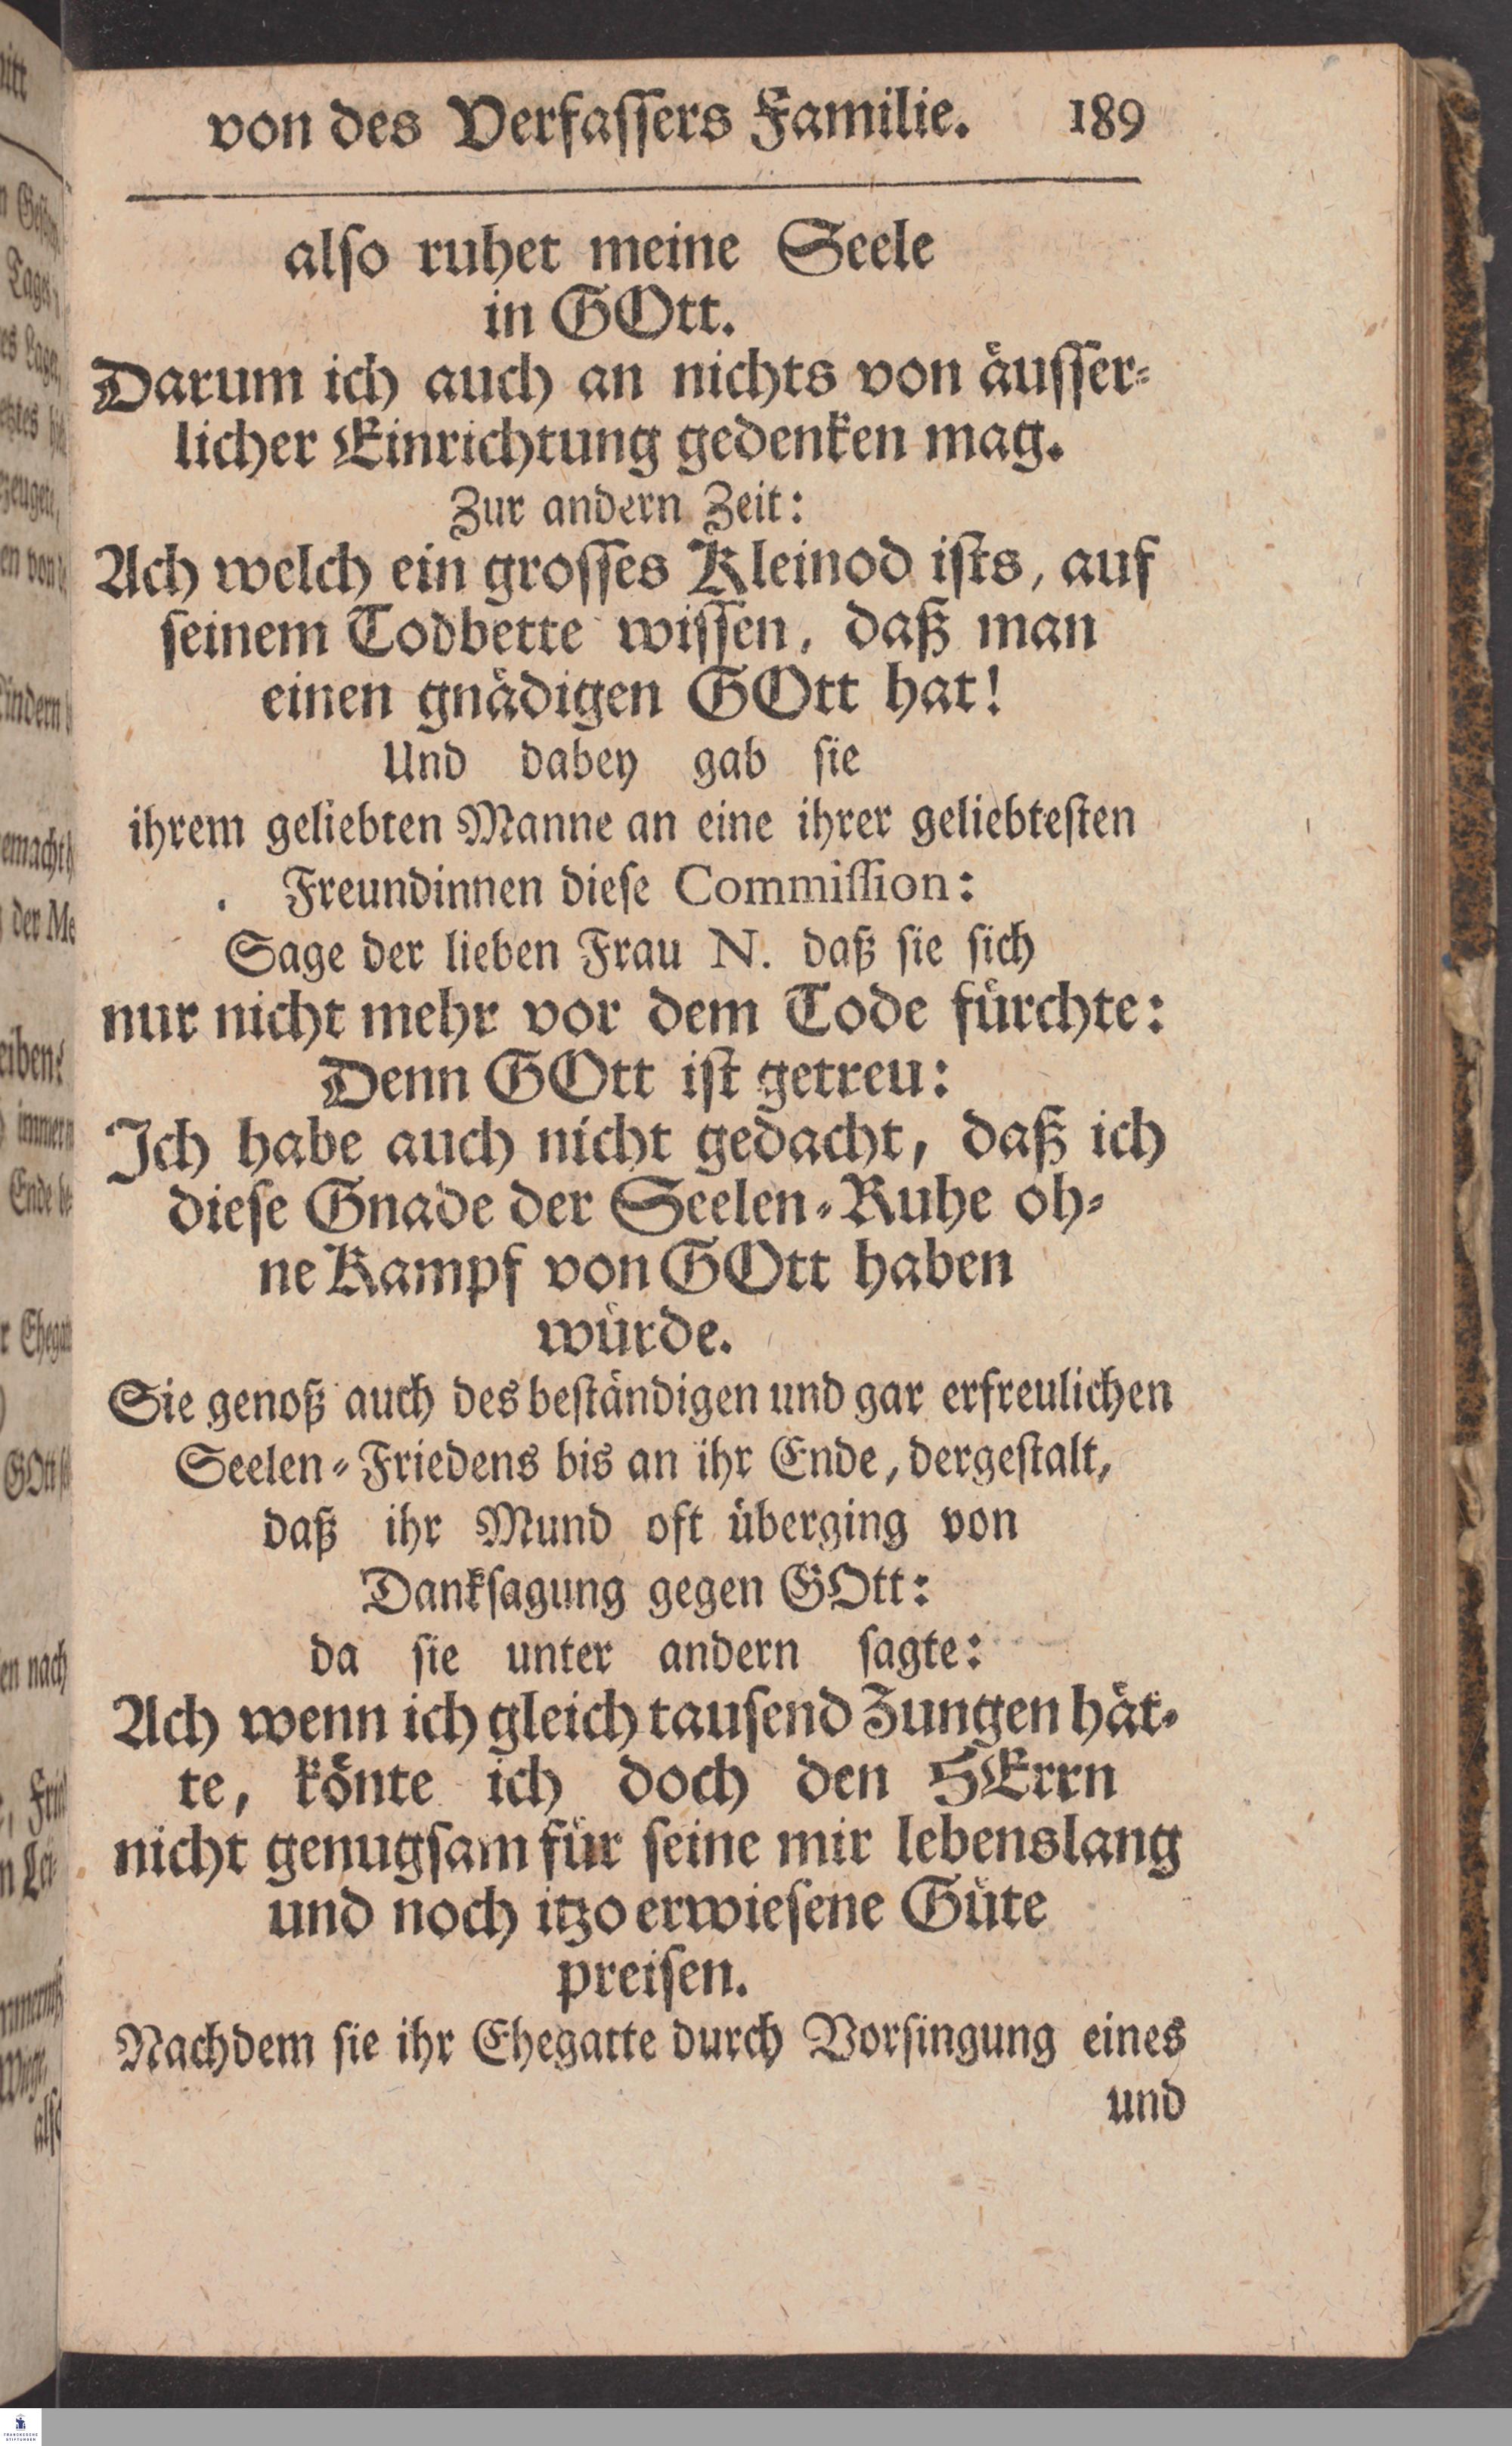 von des Verfassers Familie. 189
also ruhet meine Seele
in GOtt.
Darum ich auch an nichts von äusser-
licher Einrichtung gedenken mag.
Zur andern Zeit:
Ach welch ein grosses Kleinod ists, auf
seinem Todbette wissen, daß man
einen gnädigen GOtt hat!
Und dabey gab sie
ihrem geliebten Manne an eine ihrer geliebtesten
Freundinnen diese Commission:
Sage der lieben Frau N. daß sie sich
nur nicht mehr vor dem Tode fürchte:
Denn GOtt ist getreu:
Ich habe auch nicht gedacht, daß ich
diese Gnade der Seelen-Ruhe oh-
ne Kampf von GOtt haben
würde.
Sie genoß auch des beständigen und gar erfreulichen
Seelen-Friedens bis an ihr Ende, dergestalt,
daß ihr Mund oft überging von
Danksagung gegen GOtt:
da sie unter andern sagte:
Ach wenn ich gleich tausend Zungen hät-
te, könte ich doch den HErrn
nicht genugsam für seine mir lebenslang
und noch itzo erwiesene Güte
preisen.
Nachdem sie ihr Ehegatte durch Vorsingung eines
und